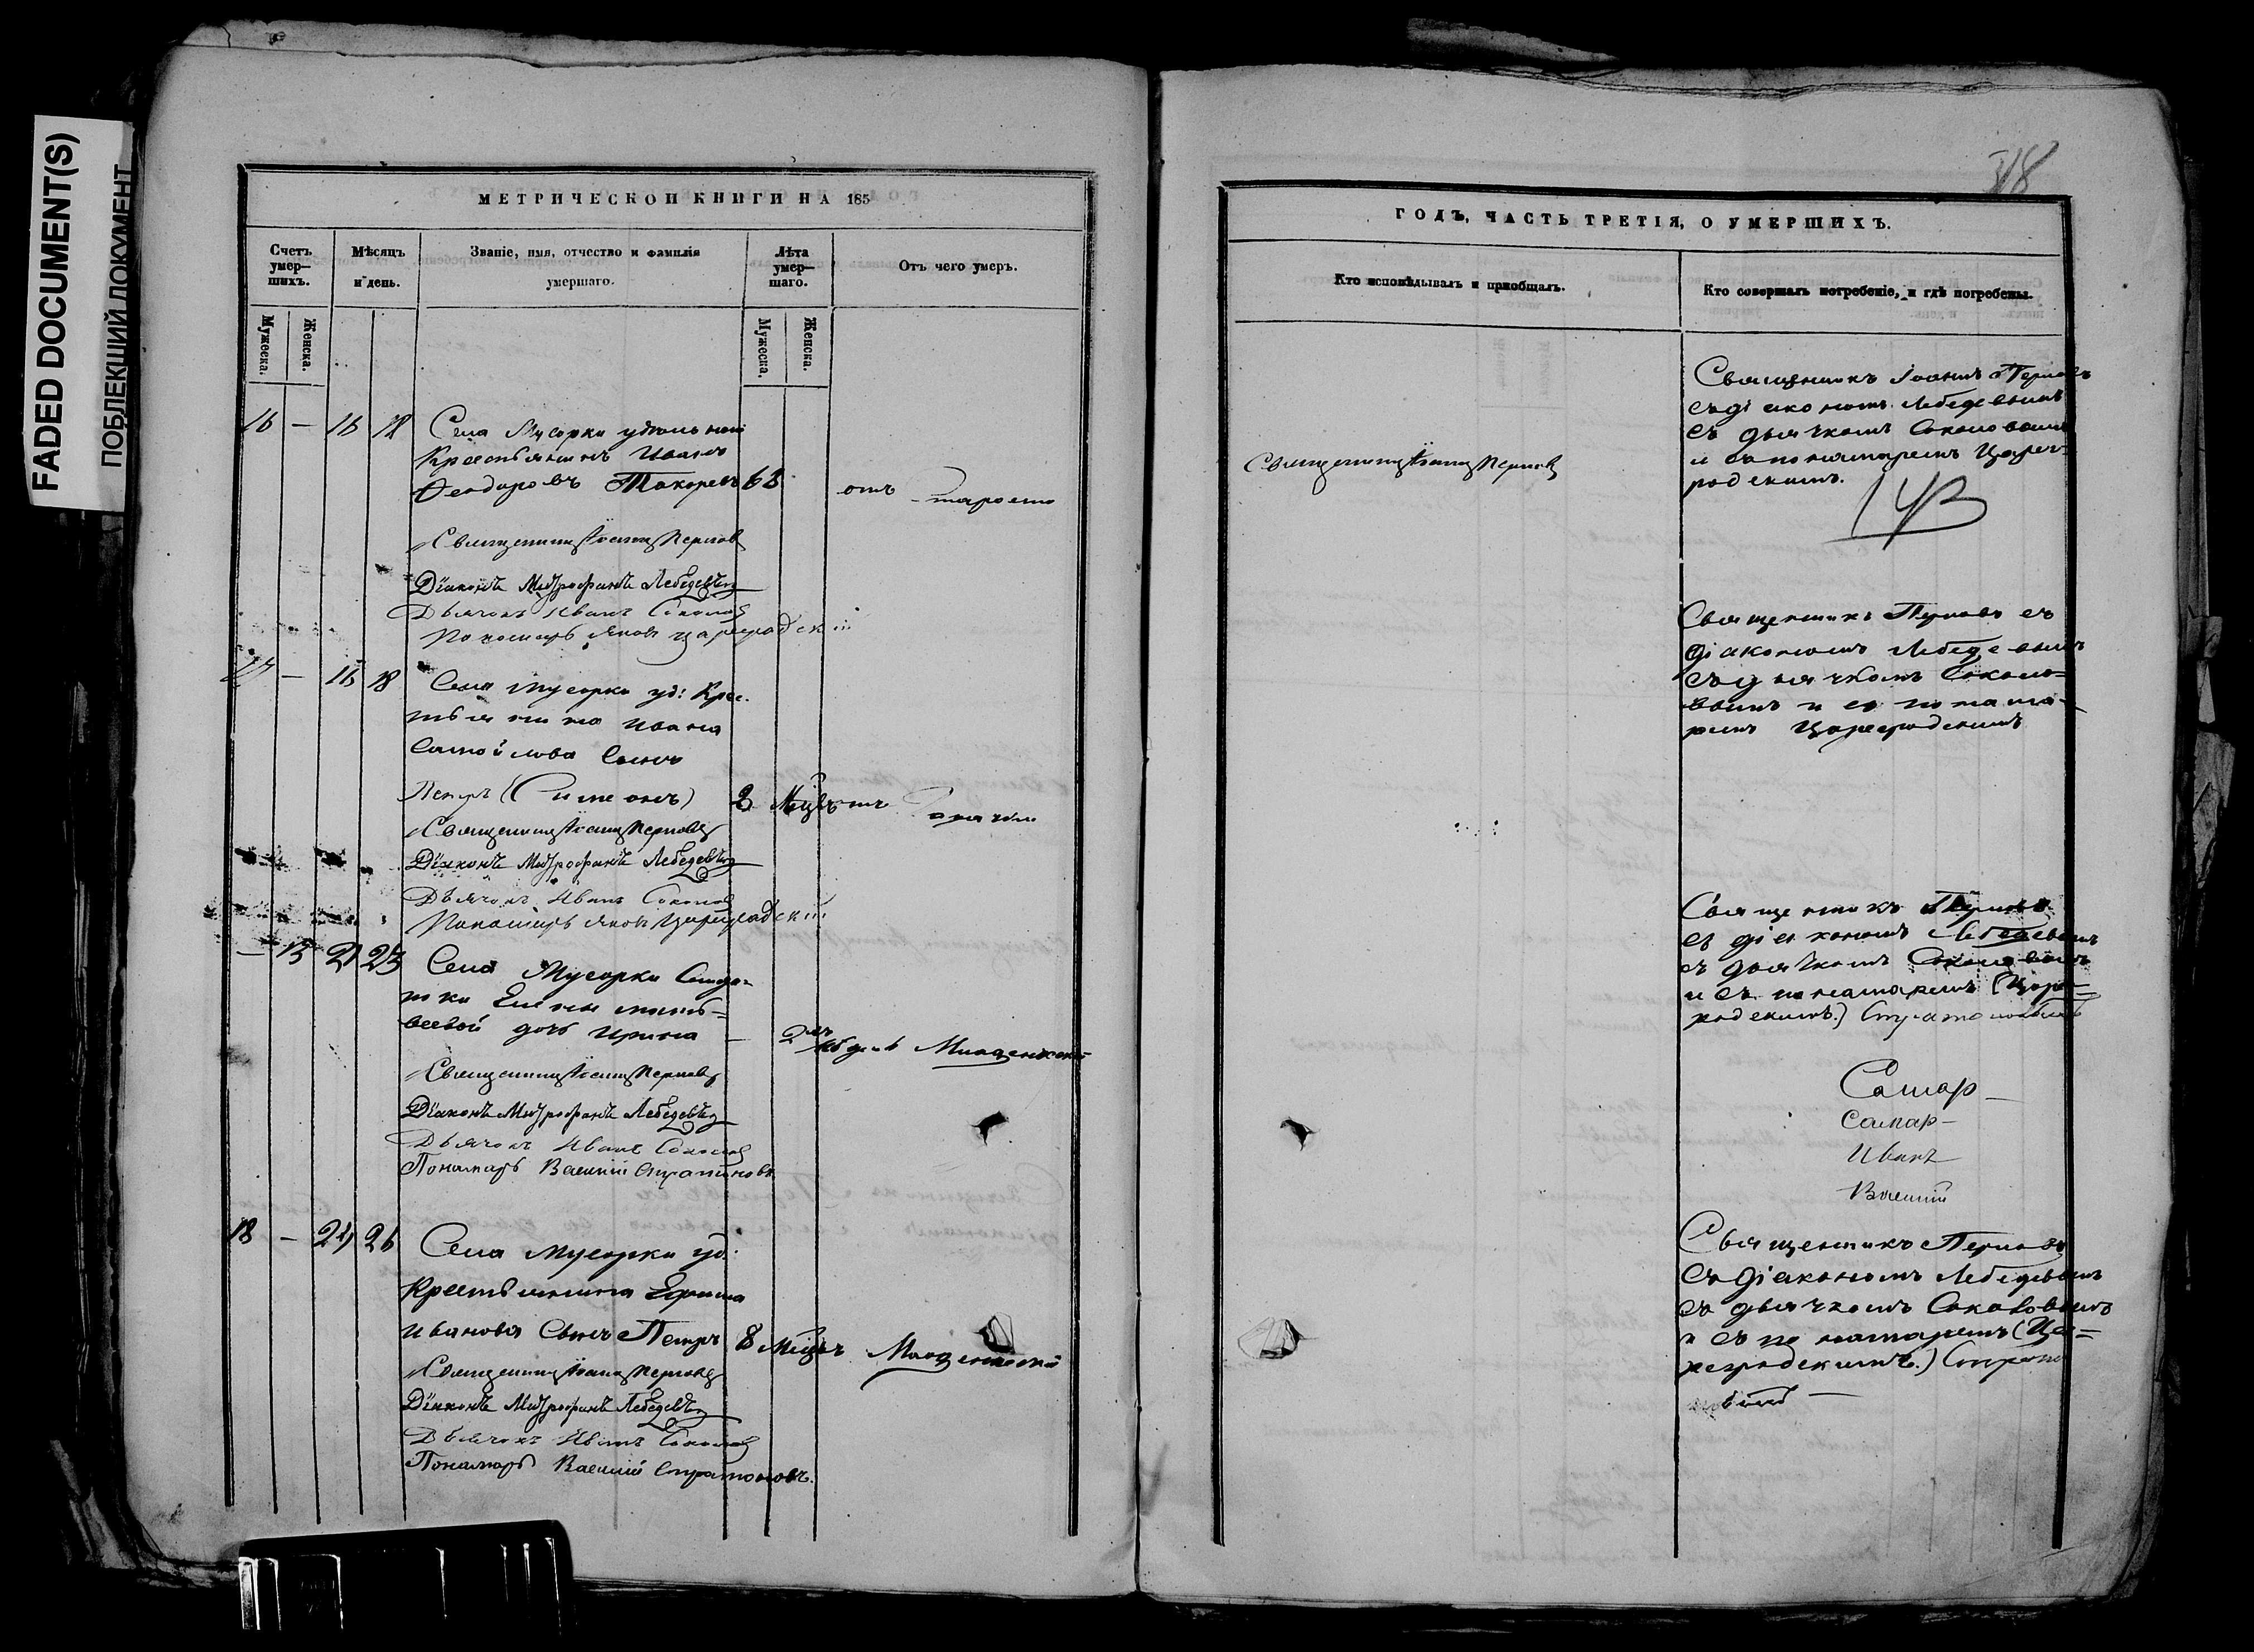 FADED DOCUMENT(S)
ПОБЛЕКШИЙ ДОКУМЕНТ
МЕТРИЧЕСКОЙ КНИГИ НА 185
Счетъ умер—шихъ.
Мѣсяцъ и день.
Званіе, имя, отчество и фамилія умершаго.
Лѣта умер—шаго.
Отъ чего умеръ.
Мужеска.
Женска.
Мужеска.
Женска.
16 — 16 18 Села Мусорки удѣльной
Крестьянинъ Иванъ
Феодоровъ Токаревъ 63 отъ старости
Священникъ Іоаннъ Перновъ
Діаконъ Митрофанъ Лебедевъ
Дьячокъ Иванъ Соколовъ
Пономарь Яковъ Цареградскій
17 — 16 18 Села Мусорки уд: Крес-
тьянина Ивана
Самойлова сынъ
Петръ (Симеонъ) 2 Мѣц. отъ
Священникъ Іоаннъ Перновъ
Діаконъ Митрофанъ Лебедевъ
Дьячокъ Иванъ Соколовъ
Пономарь Яковъ Цареградскій
— 13 21 23 Села Мусорки Солда-
тки Елены Матѳ=
веевой дочь Ирина — Младенческой
Священникъ Іоаннъ Перновъ
Діаконъ Митрофанъ Лебедевъ
Дьячокъ Иванъ Соколовъ
Пономарь Василій Стратоновъ
18 — 24 26 Села Мусорки уд:
Крестьянина Ефима
Иванова Сынъ Петръ 8 Мѣцъ Младенческой
Священникъ Іоаннъ Перновъ
Діаконъ Митрофанъ Лебедевъ
Дьячокъ Иванъ Соколовъ
Пономарь Василій Стратоновъ.
ГОДЪ, ЧАСТЬ ТРЕТІЯ, О УМЕРШИХЪ.
Кто исповѣдывалъ и пріобщалъ.
Кто совершалъ погребеніе, и гдѣ погребены.
Священникъ Іоаннъ Перновъ
Священникъ Іоаннъ Перновъ
съ діакономъ Лебедевымъ
съ дьячкомъ Соколовымъ
и пономаремъ Царег-
радскимъ.
Священникъ Перновъ съ
діакономъ Лебедевымъ
съ дьячкомъ Соколо=
вымъ и съ понома-
ремъ Цареградскимъ
Священникъ Перновъ
съ діакономъ Лебедевымъ
съ дьячкомъ Соколовымъ
и съ пономаремъ (Царе=
градскимъ.) Стратоновымъ
Самар—
Самар—
Иванъ
Василій
Священникъ Перновъ
съ діакономъ Лебедевымъ
съ дьячкомъ Соколовымъ
и съ пономаремъ (Ца=
реградскимъ.) Страто
новымъ —